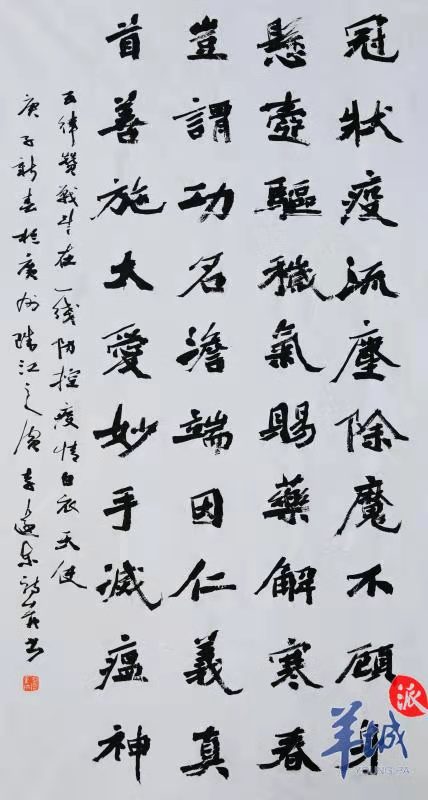 冠狀疫流塵除魔不顧身
懸壺驅穢氣賜藥解寒春
豈謂功名澹端因仁義真
首善施大愛妙手滅瘟神
五律贊戰斗在一线防控疫情白衣天使
庚子新春於廣州珠江之濱李遠東詩并书
羊城派
YOUNG PA